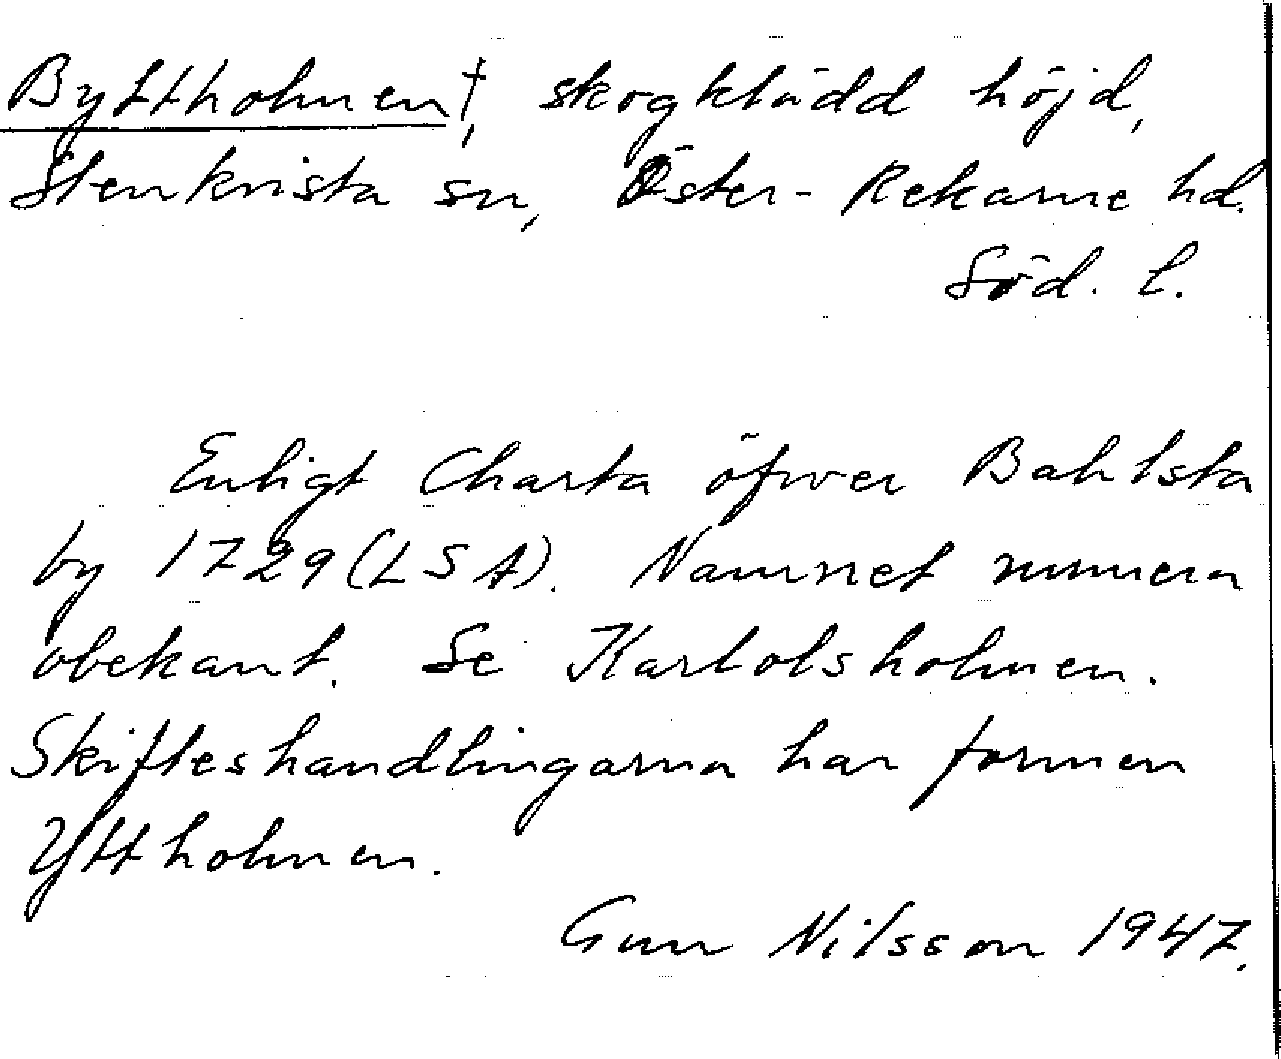 Byttholmen†, skogklädd höjd,
Stenkvista sn, Öster-Rekarne hd.
Söd. l.
Enligt Charta öfwer Bahlsta
by 1729 (LSA). Namnet numera
obekant. Se Karlolsholmen.
Skifteshandlingarna har formen
Yttholmen.
Gun Nilsson 1947.